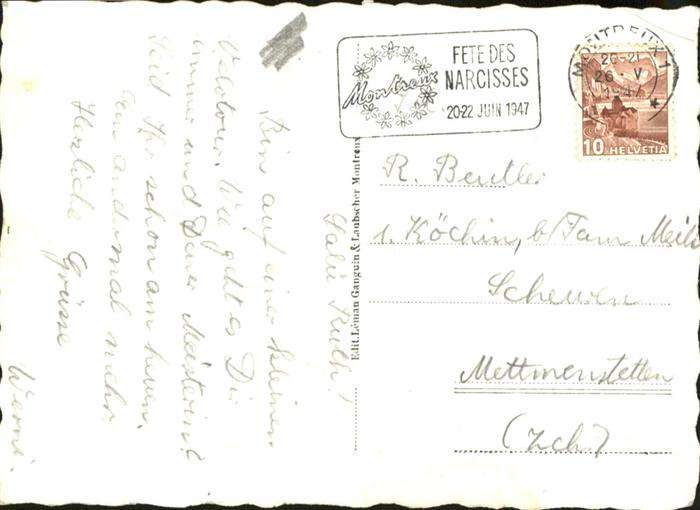 Montreux
FETE DES
NARCISSES
20-22 JUIN 1947
MONTREUX 1
26. V
1947
10 HELVETIA
R. Beutler
s. Köchin, b/Fam Meili
Scheuren
Mettmenstetten
(Zch)
Edit. Léman Ganguin & Laubscher Montreux
Salü Ruth!
Bin auf einer kleinen
Velotour. Wie geht es Dir
immer und Deiner Meisterin?
Seid Ihr schon am heuen.
Ein andermal mehr
Herzliche Grüsse
Werni.